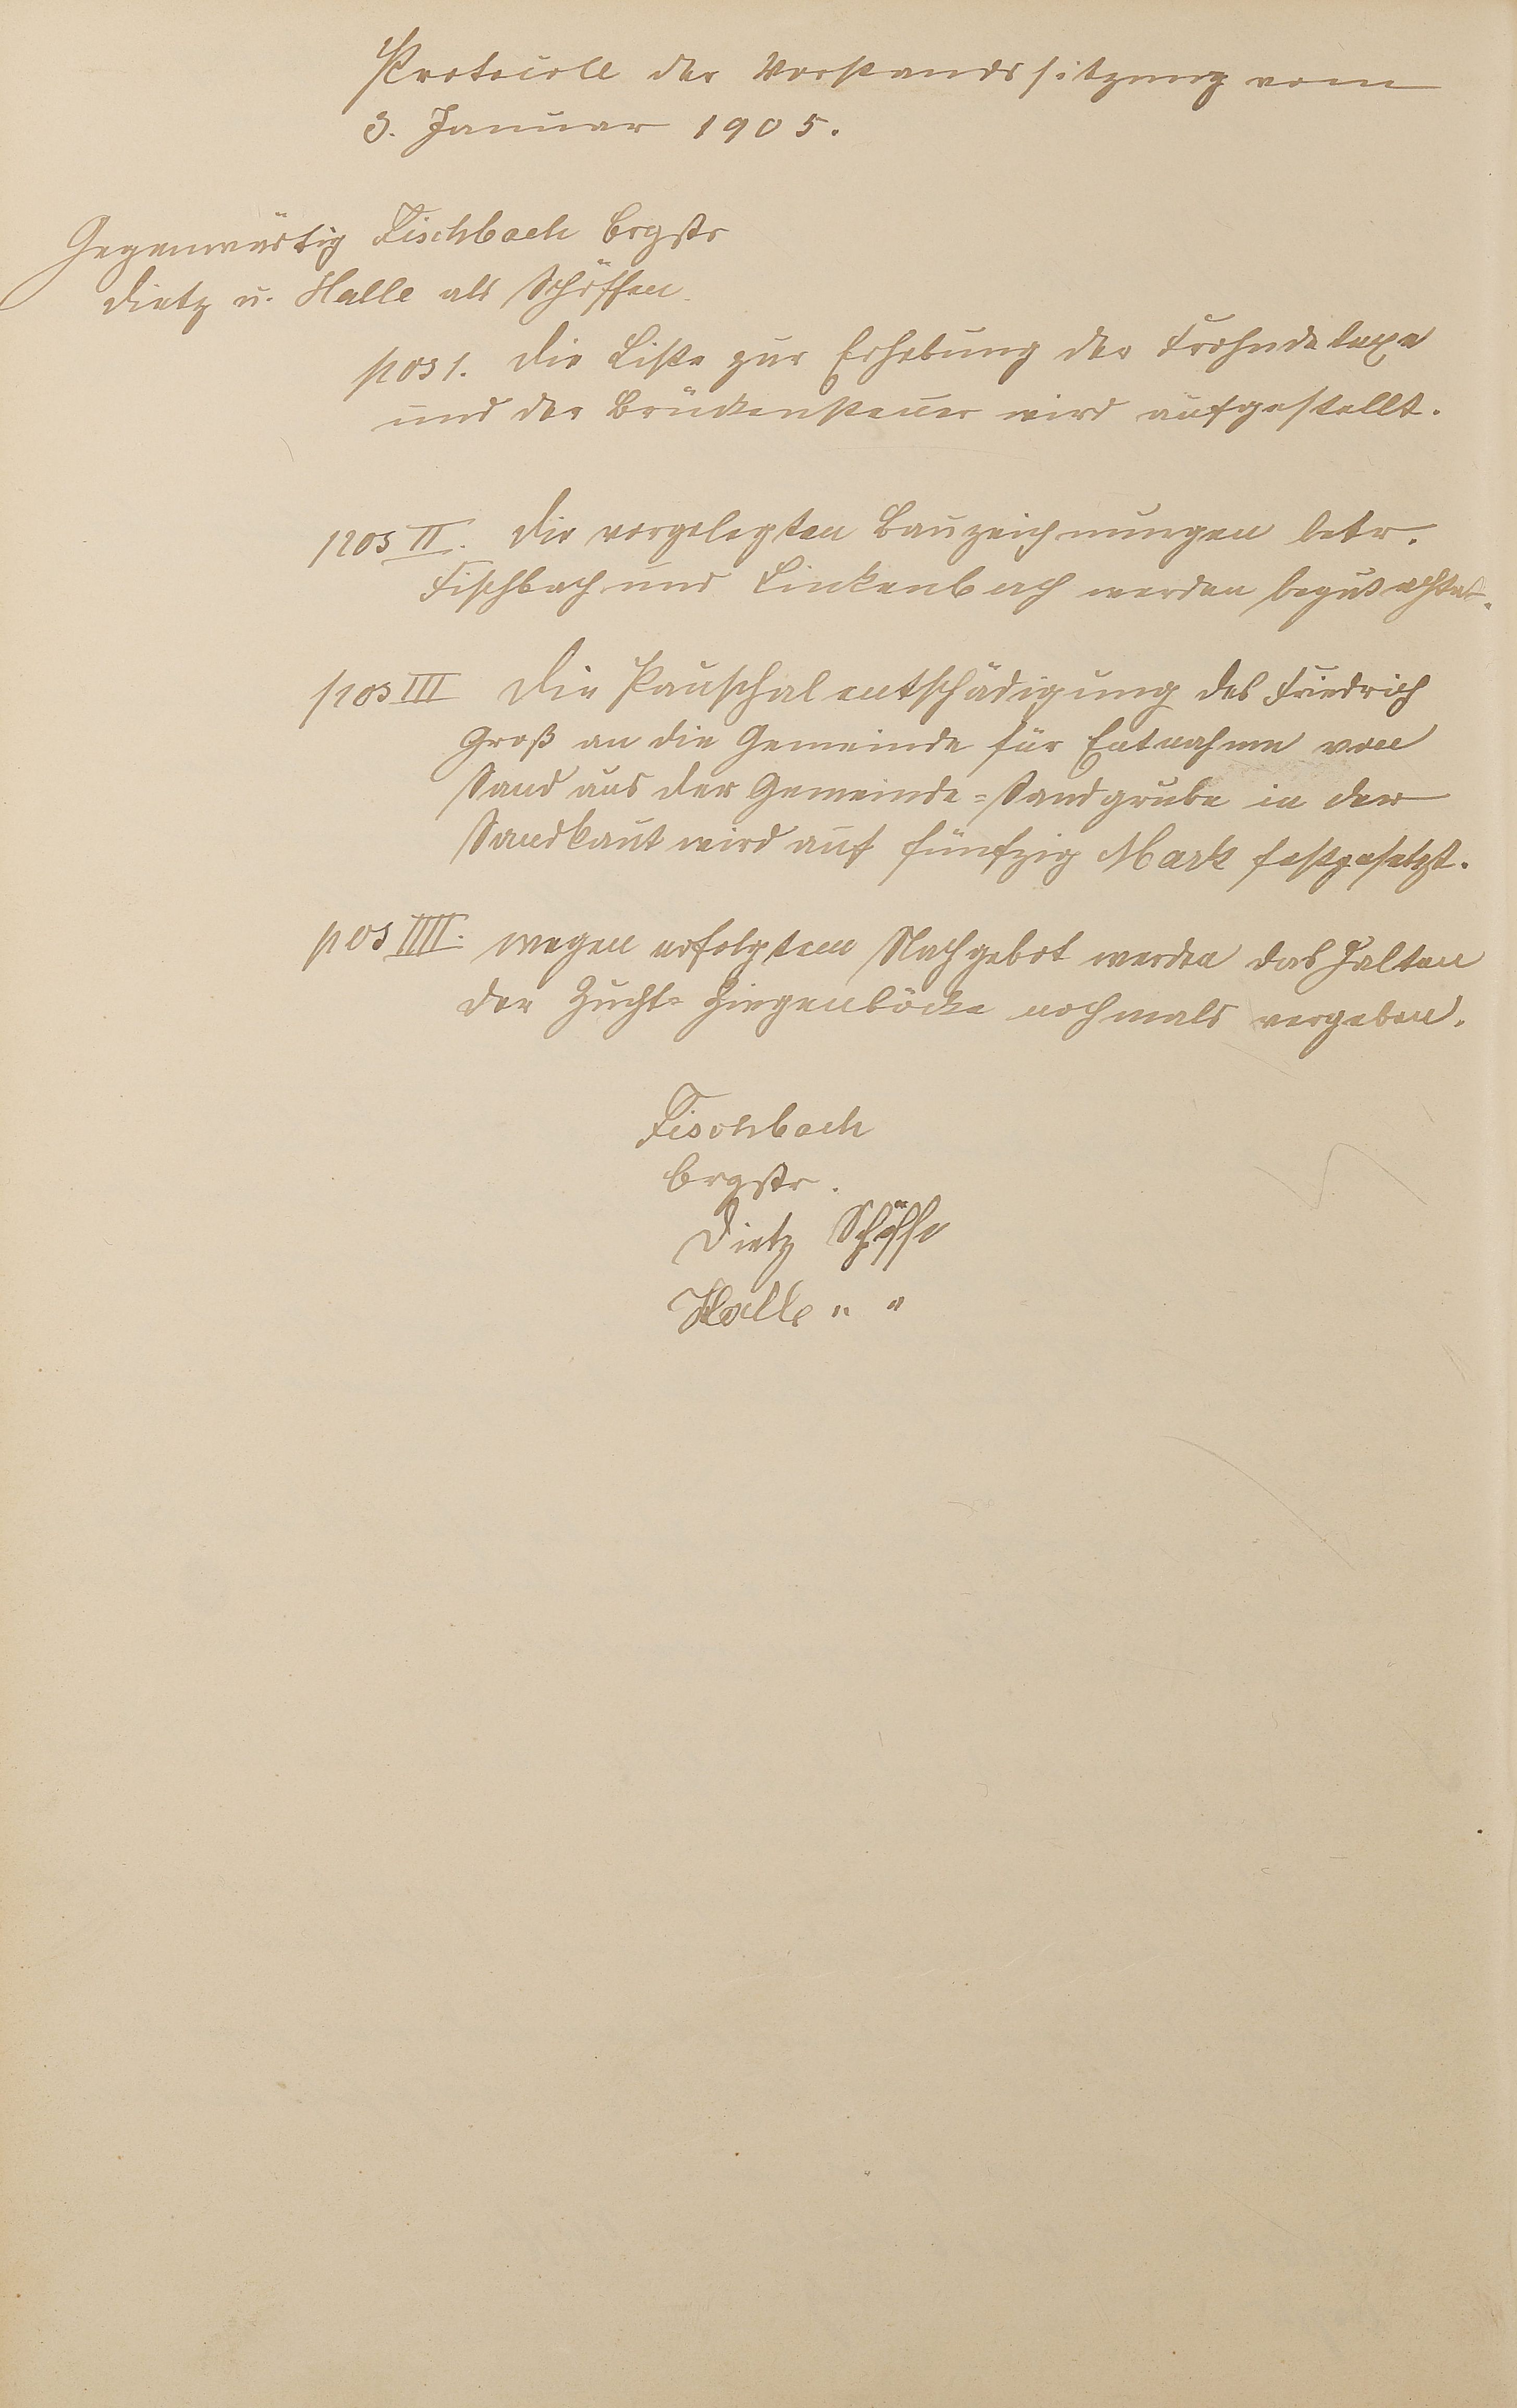 Protocoll der Vorstandssitzung vom
3. Januar 1905.
Gegenwärtig Fischbach Brgstr
Dietz u. Halle als Schöffen.
pos 1. Die Liste zur Erhebung der Frohndetaxe
und der Brückensteuer wird aufgestellt.
pos II. Die vorgelegten Bauzeichnungen betr.
Fischbach und Linkenbach werden begutachtet.
pos III Die Pauschalentschädigung des Friedrich
Groß an die Gemeinde für Entnahme von
Sand aus der Gemeinde=Sandgrube in der
Sandkaut wird auf fünfzig Mark festgesetzt.
pos IIII. wegen erfolgtem Nachgebot werden das Halten
der Zucht= Ziegenböcke nochmals vergeben.
Fischbach
Brgstr.
Dietz Schöffe
Halle " "